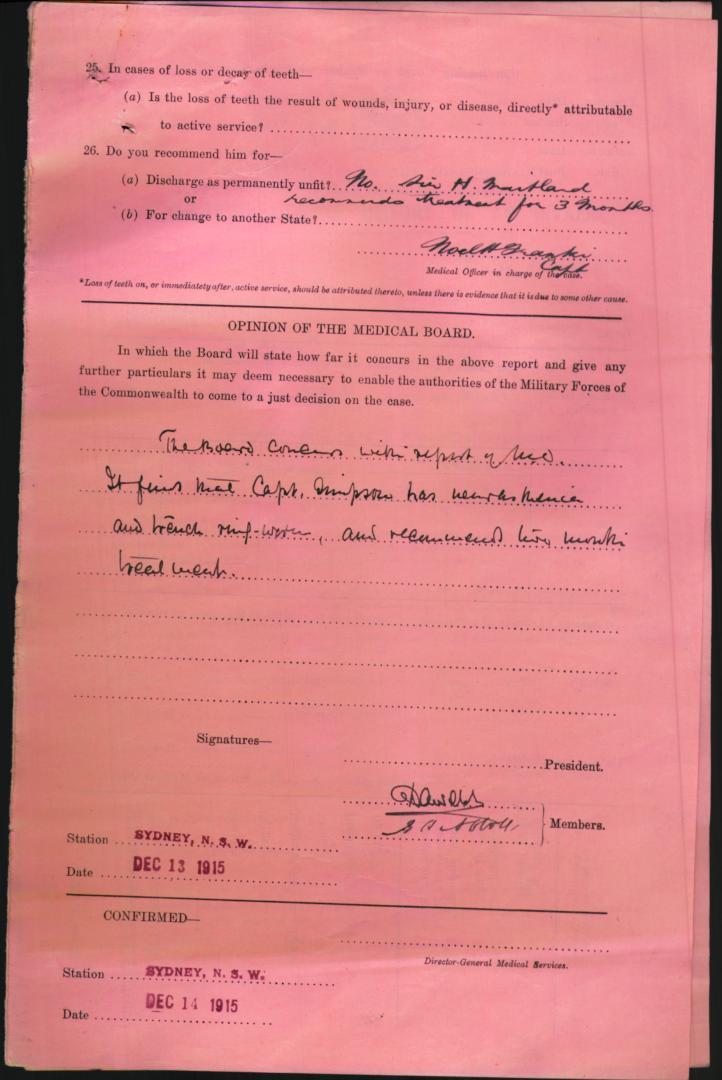 25. In cases of loss or decay of teeth—
(a) Is the loss of teeth the result of wounds, injury, or disease, directly* attributable
to active service?
26. Do you recommend him for—
(a) Discharge as permanently unfit? No. Sir H. Maitland
or recommends treatment for 3 months.
(b) For change to another State?
Noel H
Capt
Medical Officer in charge of the case.
*Loss of teeth on, or immediately after, active service, should be attributed thereto, unless there is evidence that it is due to some other cause.
OPINION OF THE MEDICAL BOARD.
In which the Board will state how far it concurs in the above report and give any
further particulars it may deem necessary to enable the authorities of the Military Forces of
the Commonwealth to come to a just decision on the case.
The Board concurs with report of M.O.
It finds that Capt. Simpson has neurasthenia
and trench ring-worm, and recommends months
treatment.
Signatures—
President.
Members.
Station SYDNEY, N. S. W.
Date DEC 13 1915
CONFIRMED—
Director-General Medical Services.
Station SYDNEY, N. S. W.
Date DEC 14 1915